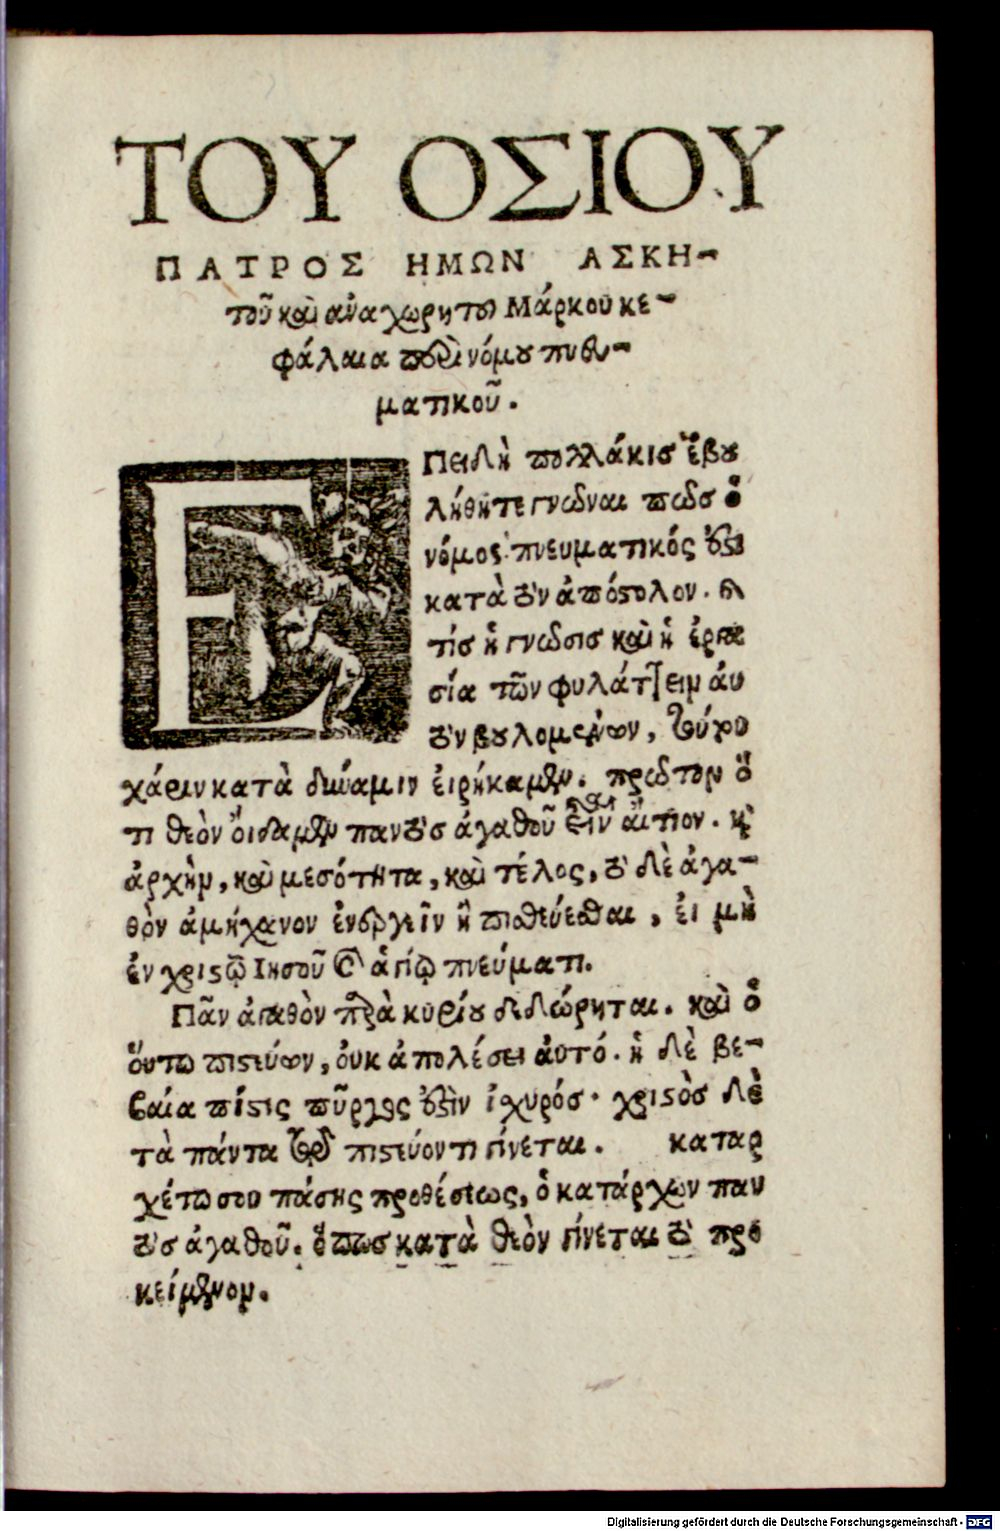 ΤΟΥ ΟΣΙΟΥ
ΠΑΤΡΟΣ ΗΜΩΝ ΑΣΚΗ-
τοῦ καὶ ἀναχωρητοῦ Μάρκου κε-
φάλαια περὶ νόμου πνευ-
ματικοῦ.
ΕΠειδὴ πολλάκις ἐβου
λήθητε γνῶναι πῶς ὁ
νόμος πνευματικός ἐστι
κατὰ τὸν ἀπόστολον. καὶ
τίς ἡ γνῶσις καὶ ἡ ἐργα
σία τῶν φυλάττειν αὐ
τὸν βουλομένων, τούτου
χάριν κατὰ δύναμιν εἰρήκαμεν. πρῶτον ὅ
τι θεὸν οἴδαμεν παντὸς ἀγαθοῦ εἶναι αἴτιον. καὶ
ἀρχὴν, καὶ μεσότητα, καὶ τέλος, τὸ δὲ ἀγα-
θὸν ἀμήχανον ἐνεργεῖν ἢ πιστεύεσθαι, εἰ μὴ
ἐν χριστῷ Ιησοῦ καὶ ἁγίῳ πνεύματι.
Πᾶν ἀγαθὸν παρὰ κυρίου δεδώρηται. καὶ ὁ
οὕτω πιστεύων, οὐκ ἀπολέσει αὐτό. ἡ δὲ βε-
βαία πίστις πύργος ἐστὶν ἰχυρός· χριστὸς δὲ
τὰ πάντα τῷ πιστεύοντι γίνεται. καταρ
χέτω σου πάσης προθέσεως, ὁ κατάρχων παν
τὸς ἀγαθοῦ. ὅπως κατὰ θεὸν γίνεται τὸ προ
κείμενον.
Digitalisierung gefördert durch die Deutsche Forschungsgemeinschaft - DFG